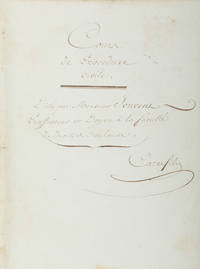 Cours
de Procédure
civile.
Dicté par Monsieur
Professeur et Doyen à la faculté
de Droit de Toulouse.